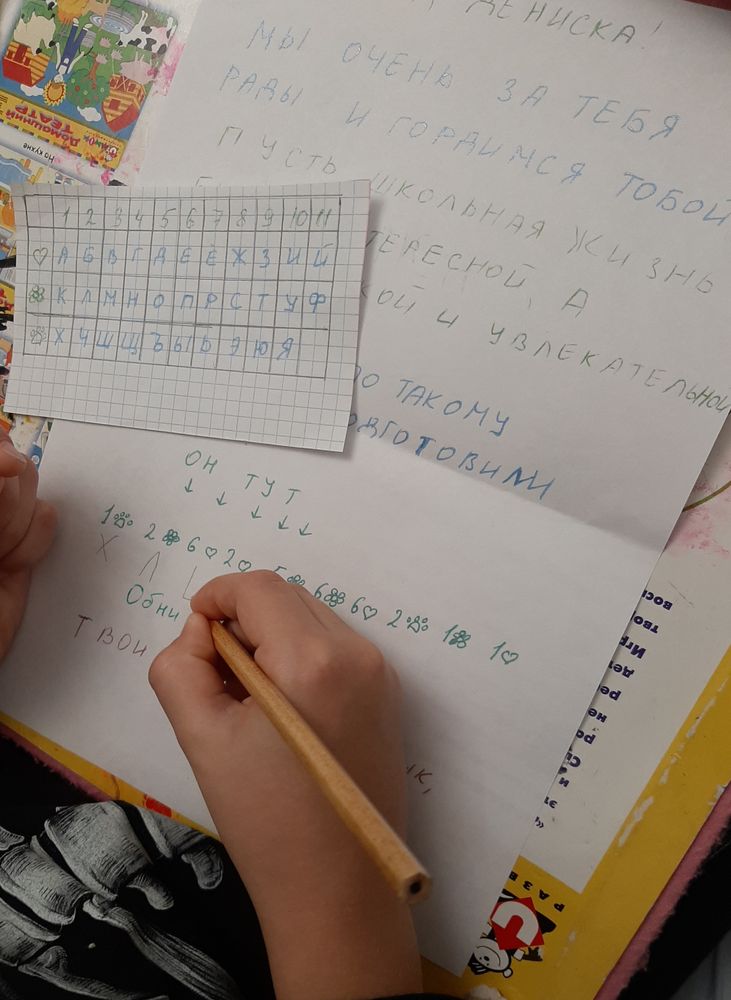 ДЕНИСКА!
МЫ ОЧЕНЬ ЗА ТЕБЯ
РАДЫ И ГОРДИМСЯ ТОБОЙ
ПУСТЬ ШКОЛЬНАЯ ЖИЗНЬ
ТЕРЕСНОЙ, А
КОЙ И УВЛЕКАТЕЛЬНОЙ
ПО ТАКОМУ
ОДГОТОВИЛИ
1 2 3 4 5 6 7 8 9 10 11
♡ А Б В Г Д Е Ё Ж З И Й
К Л М Н О П Р С Т У Ф
Х Ч Ш Щ Ъ Ы Ь Э Ю Я
ОН ТУТ
↓ ↓ ↓ ↓ ↓
1 2 6♡ 2♡ 5 6 6♡ 2 1 1♡
Х Л
Обни
ТВОИ
ик,
ДОМАШНИЙ
ТЕАТР
На кухне
РАЗВ